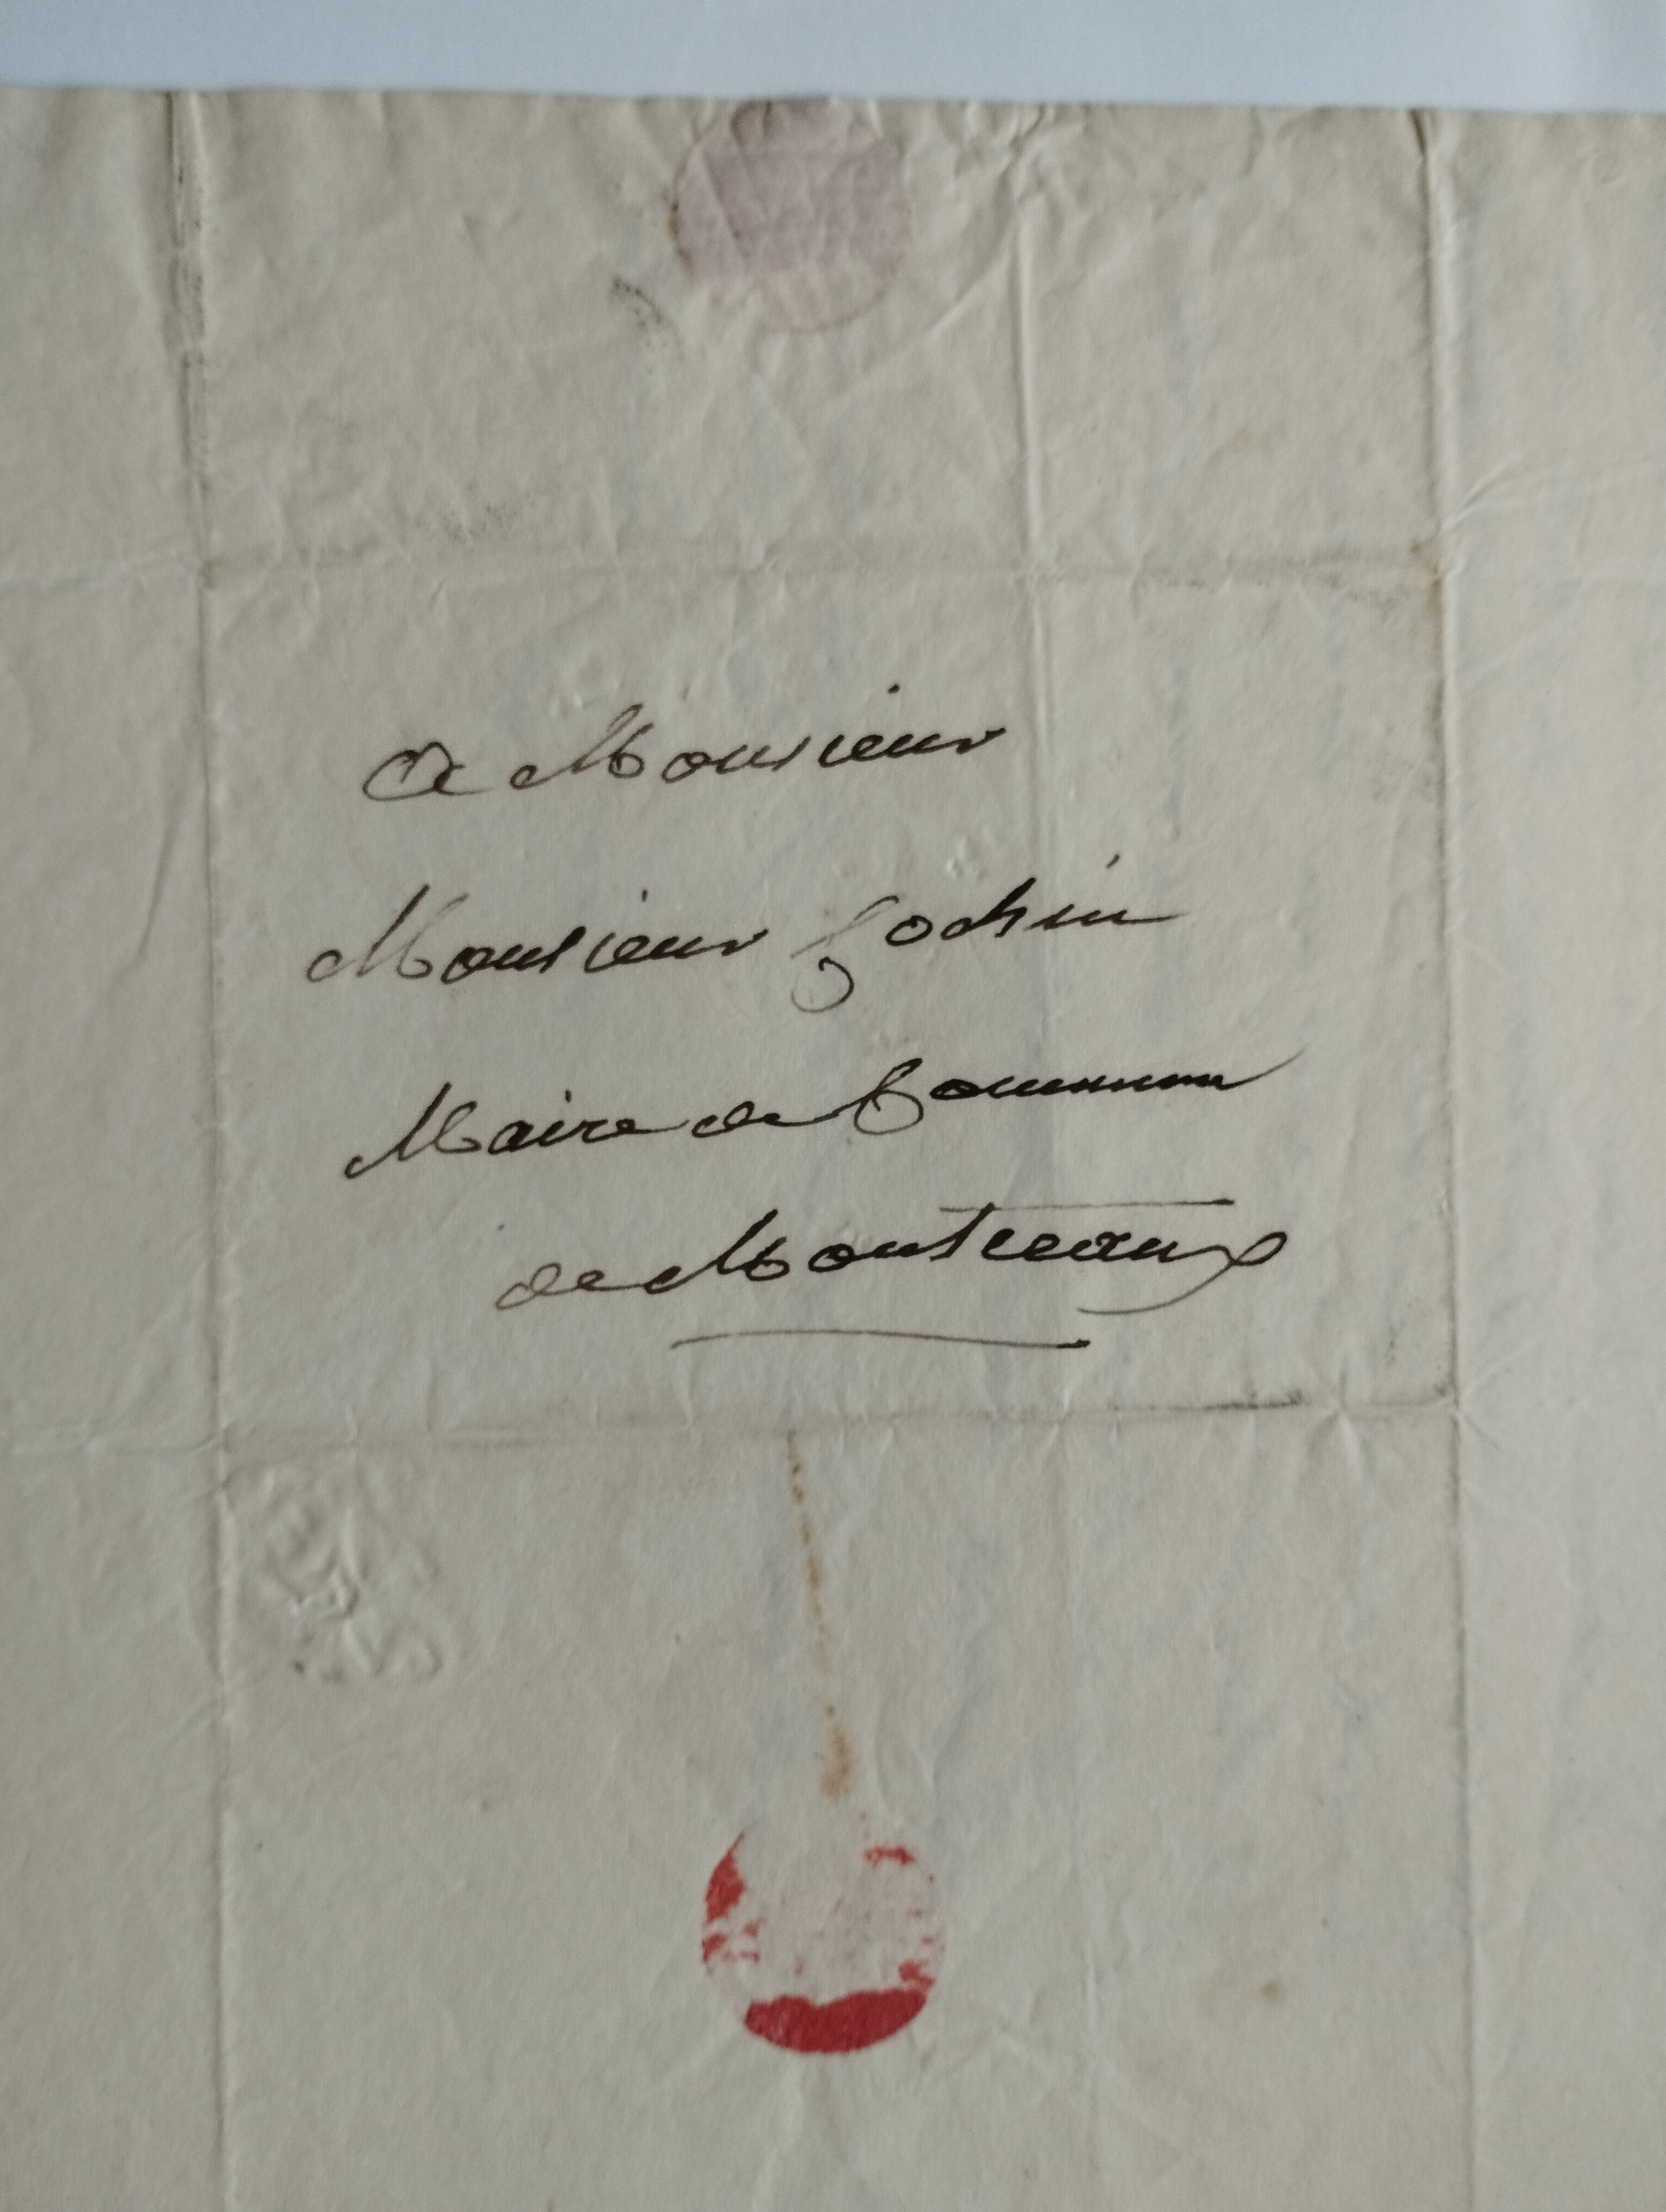 a Monsieur
Monsieur Cochin
Maire de Commune
de Montceaux